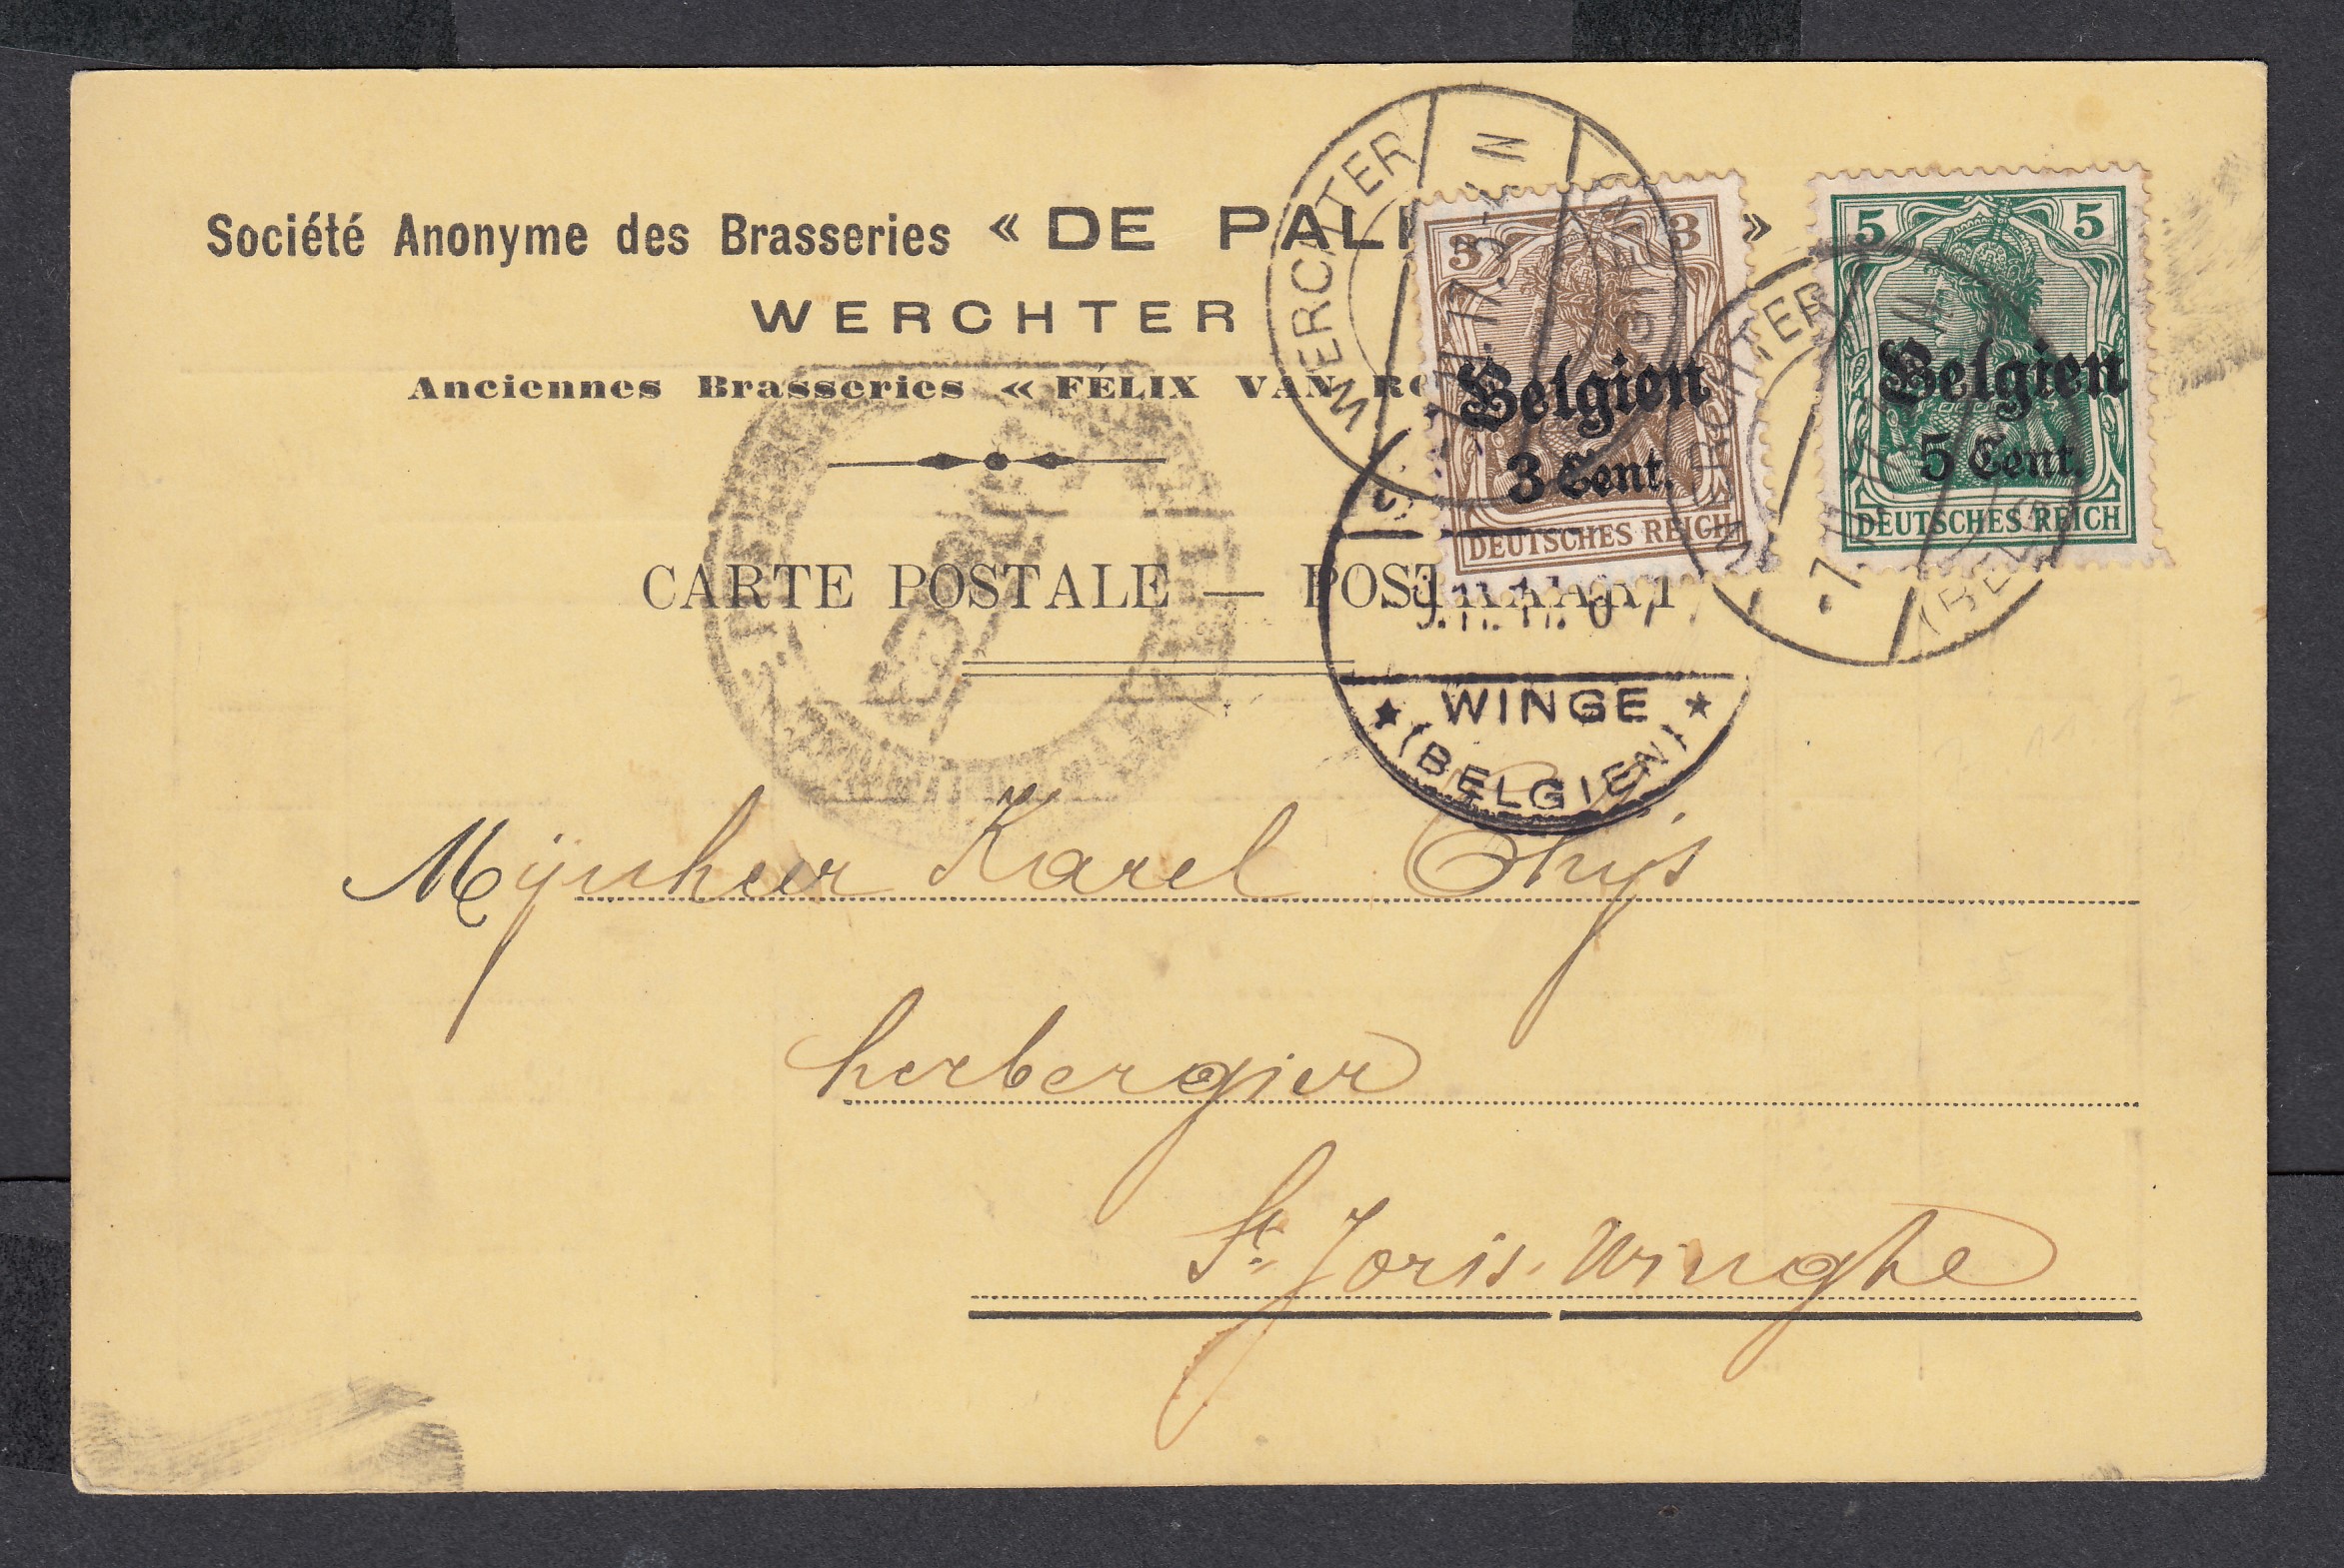 Société Anonyme des Brasseries « DE PAL »
WERCHTER
Anciennes Brasseries « FÉLIX VAN
CARTE POSTALE — POSTKAART
WERCHTER
3 3
Belgien
3 Cent.
DEUTSCHES REICH
5 5
Belgien
5 Cent.
DEUTSCHES REICH
★ WINGE ★
(BELGIEN)
Mijnheer Karel Thijs
herbergier
St. Joris-Winghe